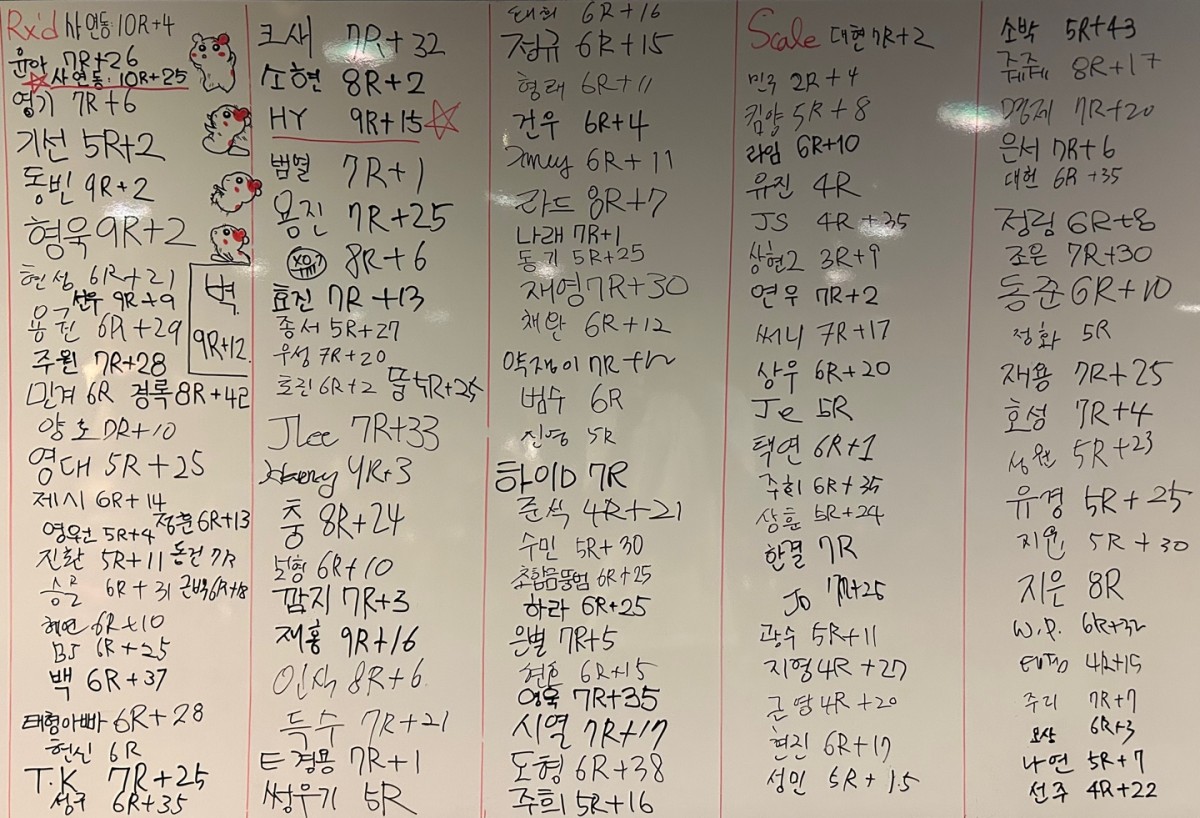 Rx'd 사연동: 10R+4
윤아 7R+26
☆사연동: 10R+25
영기 7R+6
기선 5R+2
동빈 9R+2
형욱 9R+2
현성 6R+21
선우 9R+9
벽
9R+12
용권 6R+29
주원 7R+28
민겨 6R 경록 8R+42
양호 DR+10
영대 5R+25
제시 6R+14
영우 5R+4 정훈 6R+13
진환 5R+11 동건 7R
6R+31 6R+18
혜연 6R+10
BJ 6R+25
백 6R+37
태형아빠 6R+28
현신 6R
T.K 7R+25
성구 6R+35
크새 7R+32
소현 8R+2
HY 9R+15 ☆
범열 7R+1
용진 7R+25
8R+6
효진 7R+13
종서 5R+27
우성 7R+20
호진 6R+2
Jlee 7R+33
4R+3
충 8R+24
보형 6R+10
깜지 7R+3
재홍 9R+16
인식 8R+6
득수 7R+21
E경용 7R+1
썽우기 5R
태희 6R+16
정규 6R+15
형래 6R+11
건우 6R+4
6R+11
라드 8R+7
나래 7R+1
동기 5R+25
재영 7R+30
채완 6R+12
약쟁이 7R+12
범수 6R
진영 5R
하이D 7R
준석 4R+21
수민 5R+30
초합금뚱범 6R+25
하라 6R+25
은별 7R+5
현호 6R+15
영욱 7R+35
시열 7R+17
도형 6R+38
주희 5R+16
Scale 대현 7R+2
민국 2R+4
킴양 5R+8
라임 6R+10
유진 4R
JS 4R+35
상현2 3R+9
연우 7R+2
써니 7R+17
상우 6R+20
Je 5R
택연 6R+1
주희 6R+35
상훈 5R+24
한결 7R
JD 7R+25
광수 5R+11
지형 4R+27
근영 4R+20
현진 6R+17
성민 5R+15
소박 5R+43
쥬쥬 8R+17
명제 7R+20
은서 7R+6
대현 6R+35
정림 6R+8
조은 7R+30
동준 6R+10
정화 5R
재용 7R+25
효성 7R+4
성원 5R+23
유경 5R+25
지윤 5R+30
지은 8R
W.P. 6R+32
4R+15
주리 7R+7
요상 6R+3
나연 5R+7
선주 4R+22